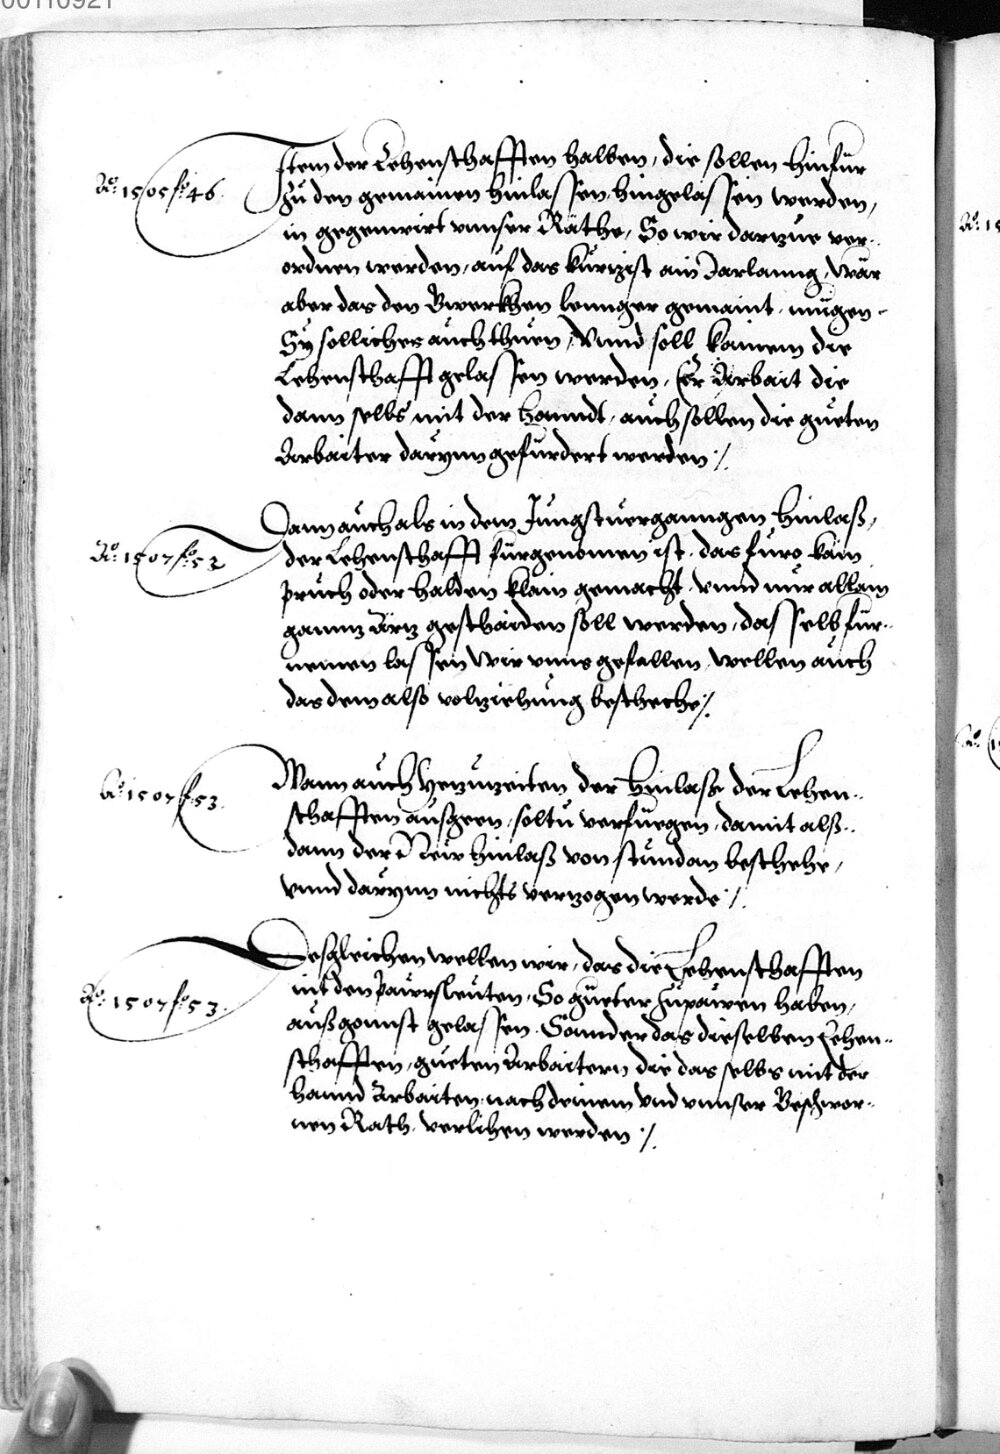 00110921
Ao: 1505 fo: 46.
Item der Lehenschafften halben, die sollen hinfür
zu den gemainen hinlassen, hingelassen werden,
in gegenwirt vnnser Räthe, So wir darzue ver-
ordnen werden, auf das kürtzist ain Jarlanng, Wär
aber das den Gwerkhen lennger gemaint, mügen
Sy solliches auch thuen, Vnnd soll kainem die
Lehenschafft gelassen werden, Er Arbait die
dann selbs mit der Hanndt, auch sollen die gueten
Arbaiter darynn gefürdert werden ./.
Ao: 1507 fo: 52
Dann auch als in dem Jungstuerganngen hinlaß,
der Lehenschafft fürgenomen ist, das füro kain
pruch oder halden klain gemacht, vnnd nur allain
gannz Ärz geschaiden soll werden, das selb für-
nemen lassen Wir vnns gefallen, wellen auch
das dem also volziehung beschehe ./.
Ao: 1507 fo: 53.
Wann auch yezunzeiten der hinlaß der Lehen-
schafften ausgeen, soltu verfüegen, damit alß-
dann der New hinlaß von stundan beschehe,
vnnd darynn nichts verzogen werde ./.
Ao: 1507 fo: 53.
Desgleichen wellen wir, das die Lehenschafften
nit den Pawrsleuten, So güeter zupawen haben,
auß gonnst gelassen. Sonnder das dieselben Lehen-
schafften, gueten Arbaitern die das selbs mit der
hannd Arbaiten, nach deinem vnd vnnser Geschwor-
nen Rath, verlihen werden ./.
Ao: 15
Ao: